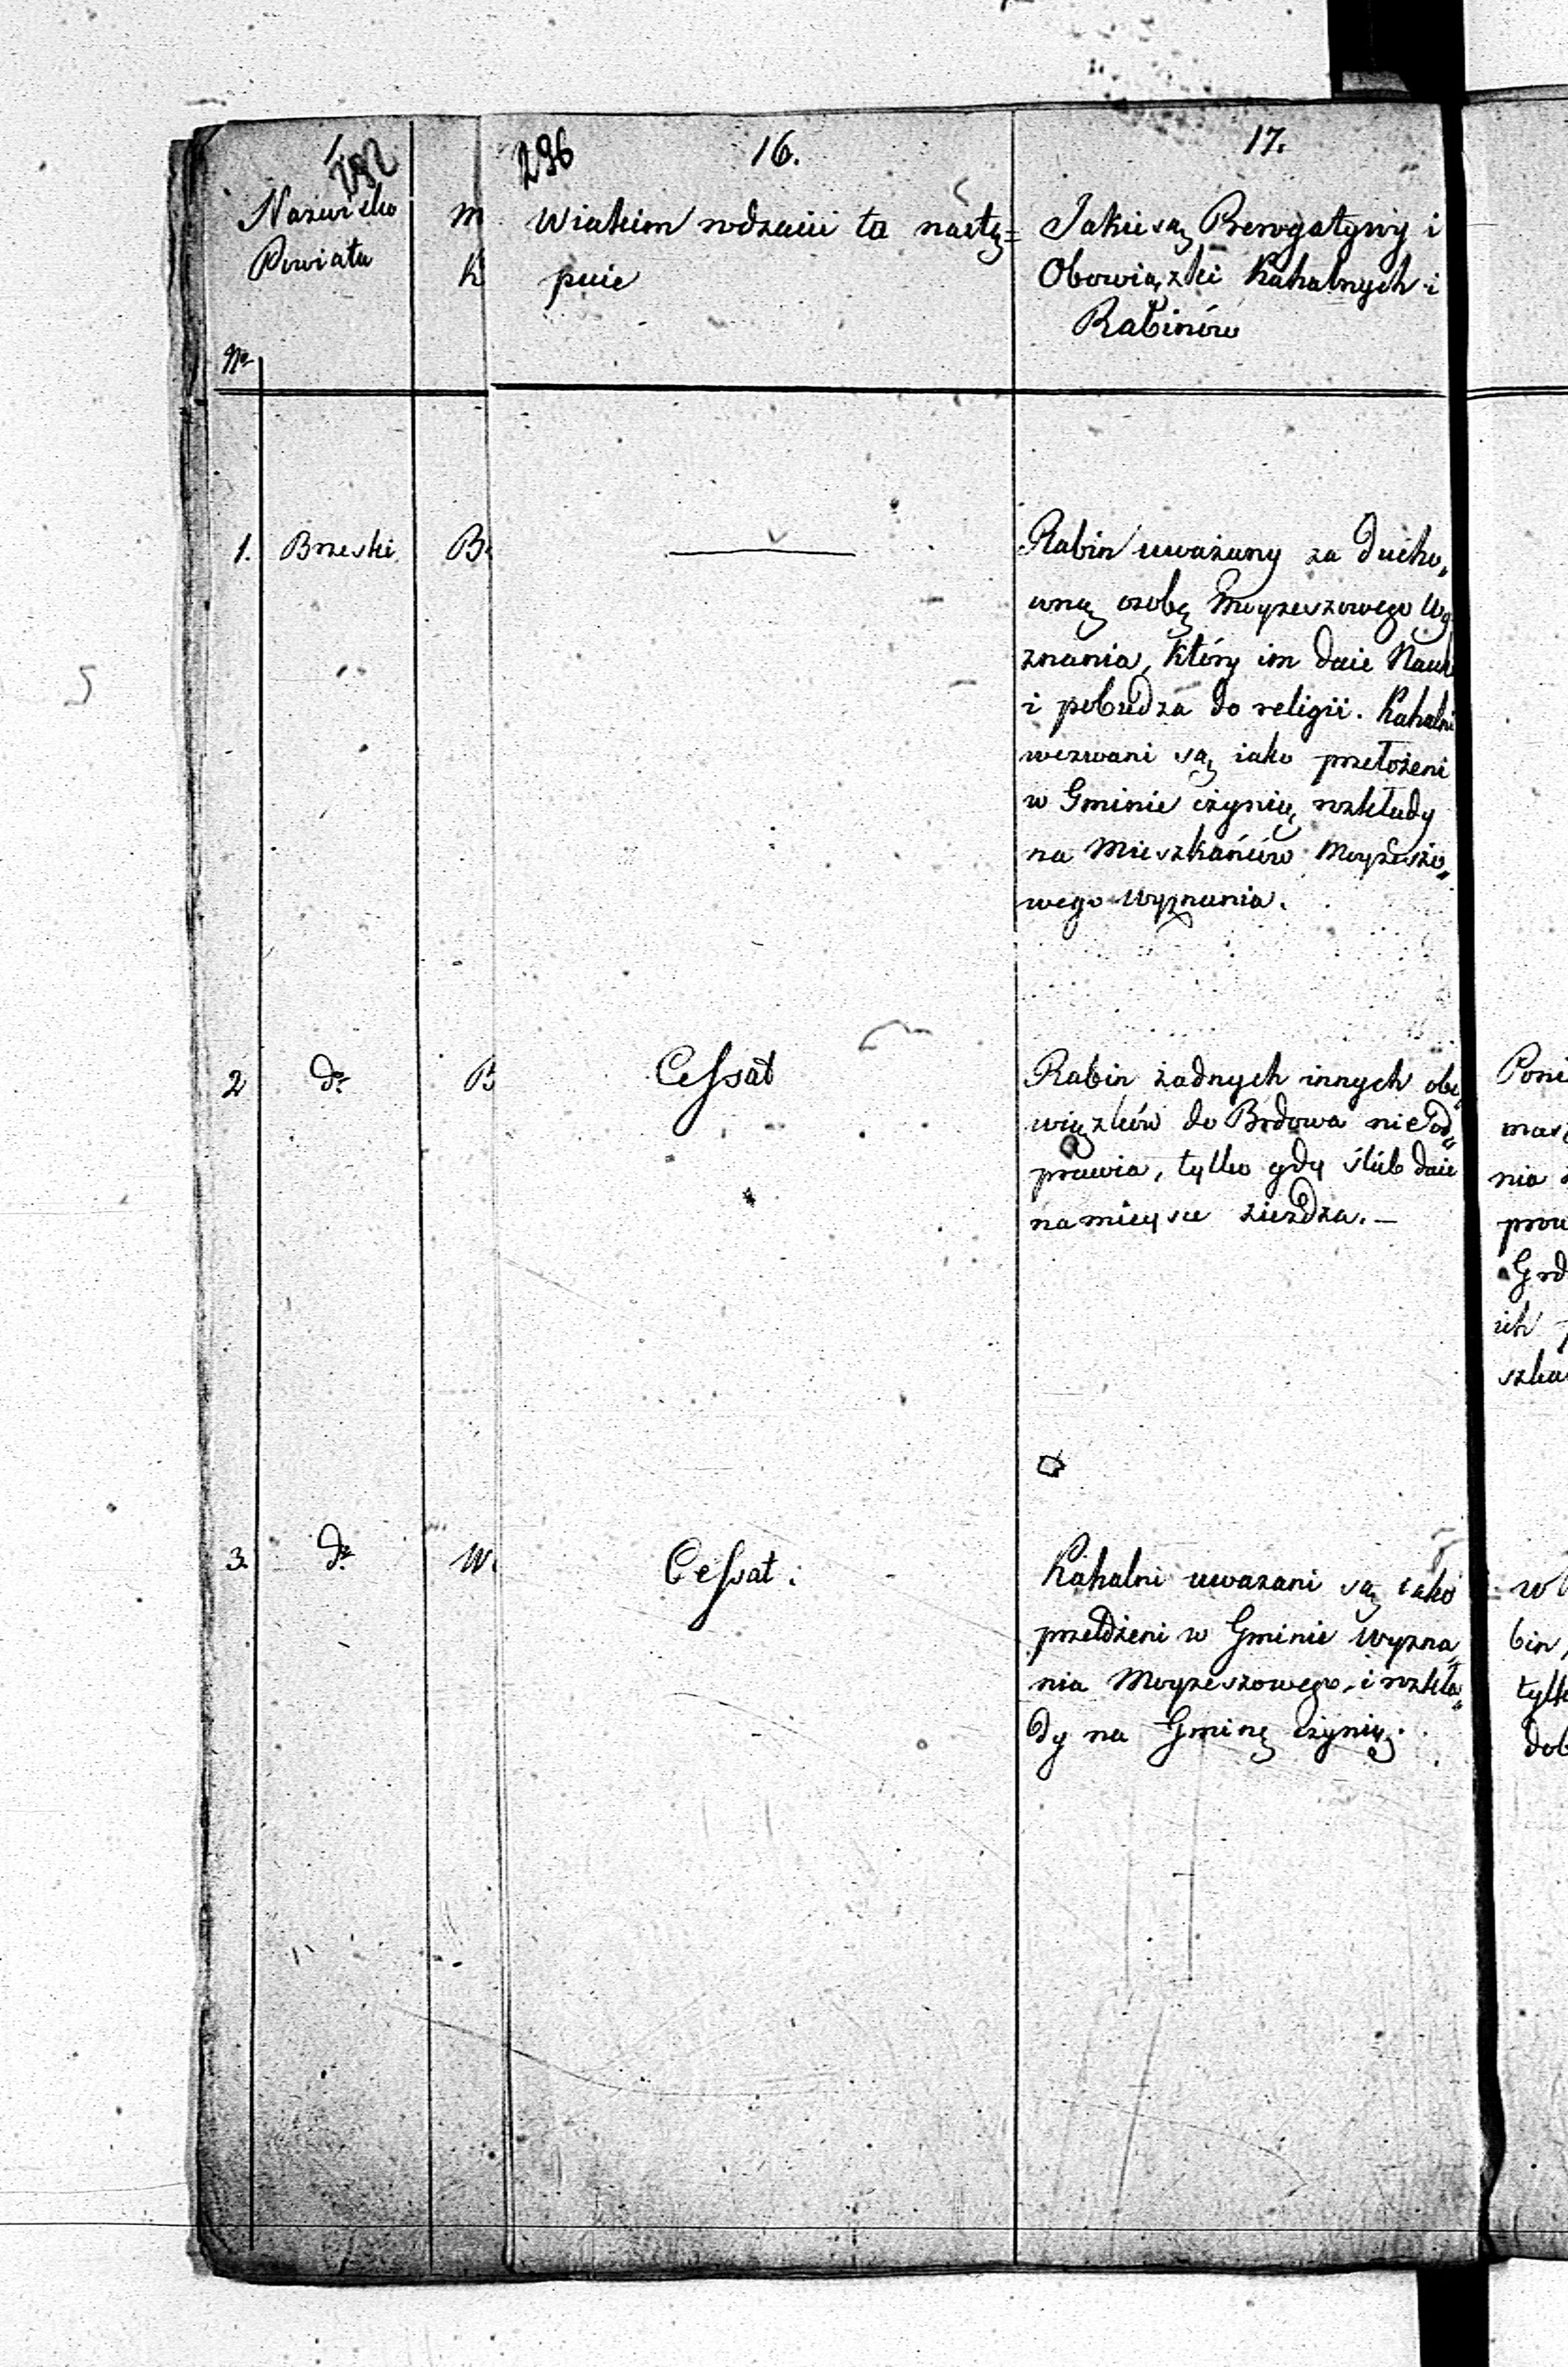 296
16.
17.
Nazwisko
Powiatu
No
M
K
W iakim rodzaiu to nastę=
puie
Jakie są Prerogatywy i
Obowiązki Kahalnych i
Rabinów
1. Brzeski B
Rabin uważany za ducho„
wną osobę Moyżeszowego Wy
znania, który im daie Nauk
i pobudza do religii. Kahalni
wezwani są iako przełożeni
w Gminie czynią rozkłady
na Mieszkańców Moyżeszo„
wego Wyznania.
2 do B
Cessat
Rabin żadnych innych obo
wiązków do Brdowa nie od„
prawia, tylko gdy ślub daie
na mieysce ziezdza. —
Poni
nia
Grd
ich
szka
3. do W
Cessat.
Kahalni uwazani są iako
przełożeni w Gminie Wyzna„
nia Moyżeszowego, i rozkła„
dy na Gminę czynią.
w
bin
tylk
dob